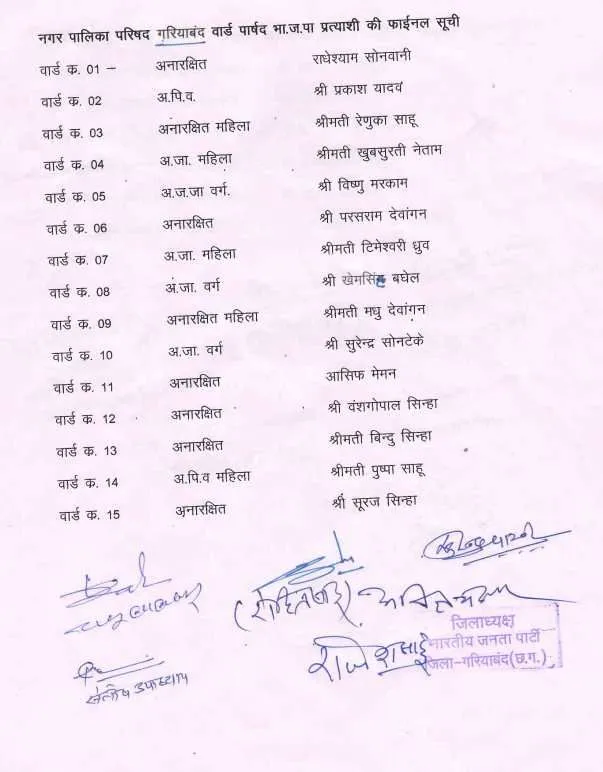 नगर पालिका परिषद गरियाबंद वार्ड पार्षद भा.ज.पा प्रत्याशी की फाईनल सूची
वार्ड क. 01 – अनारक्षित राधेश्याम सोनवानी
वार्ड क. 02 अ.पि.व. श्री प्रकाश यादव
वार्ड क. 03 अनारक्षित महिला श्रीमती रेणुका साहू
वार्ड क. 04 अ.जा. महिला श्रीमती खुबसुरती नेताम
वार्ड क. 05 अ.ज.जा वर्ग. श्री विष्णु मरकाम
वार्ड क. 06 अनारक्षित श्री परसराम देवांगन
वार्ड क. 07 अ.जा. महिला श्रीमती टिमेश्वरी ध्रुव
वार्ड क. 08 अ.जा. वर्ग श्री खेमसिंह बघेल
वार्ड क. 09 अनारक्षित महिला श्रीमती मधु देवांगन
वार्ड क. 10 अ.जा. वर्ग श्री सुरेन्द्र सोनटेके
वार्ड क. 11 अनारक्षित आसिफ मेमन
वार्ड क. 12 अनारक्षित श्री वंशगोपाल सिन्हा
वार्ड क. 13 अनारक्षित श्रीमती बिन्दु सिन्हा
वार्ड क. 14 अ.पि.व महिला श्रीमती पुष्पा साहू
वार्ड क. 15 अनारक्षित श्री सूरज सिन्हा
जिलाध्यक्ष
भारतीय जनता पार्टी
जिला-गरियाबंद (छ.ग.)
संतोष उपाध्याय